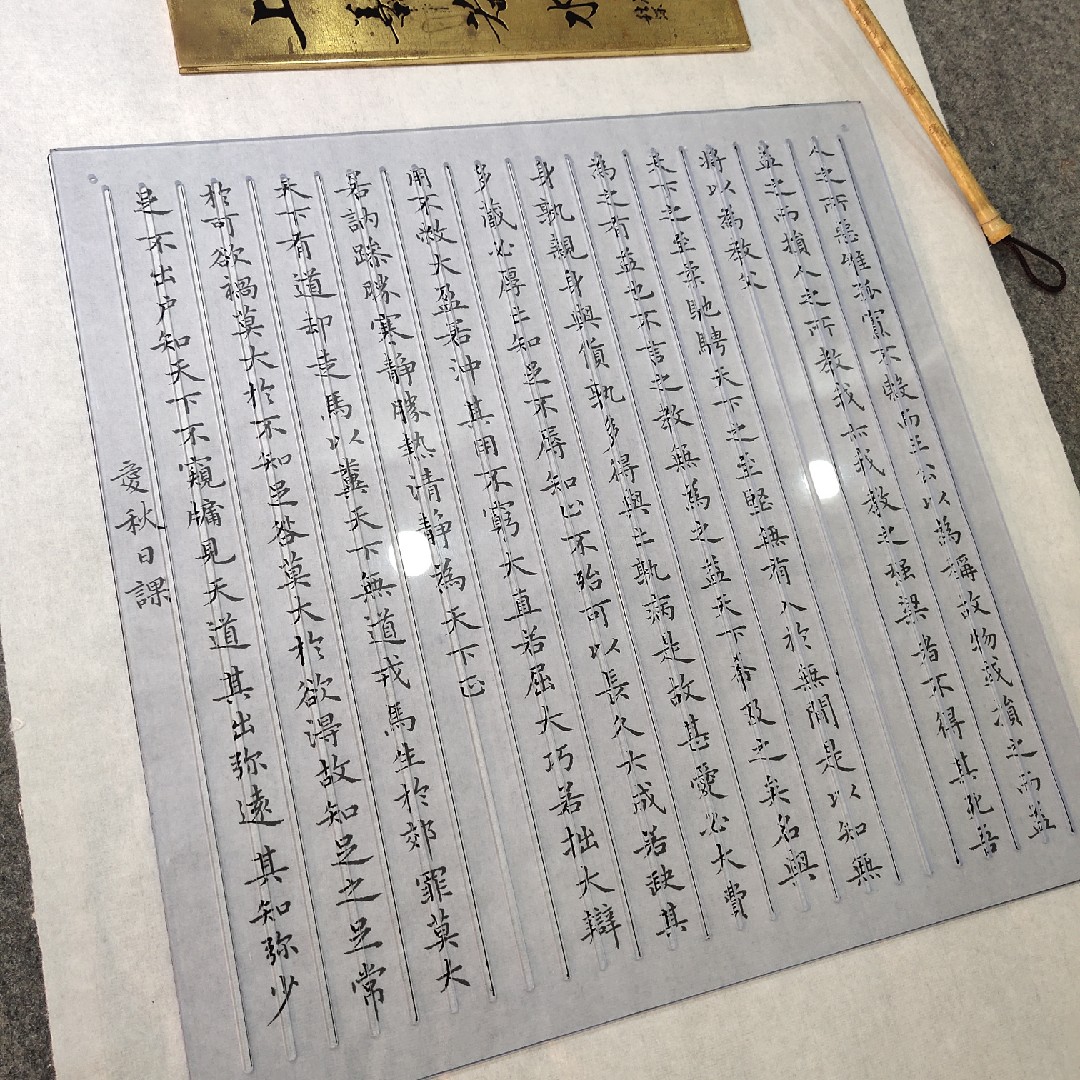 人之所惡惟孤寡不穀而王公以為稱故物或損之而益
益之而損人之所教我亦我教之强梁者不得其死吾
將以為教父
天下之至柔馳騁天下之至堅無有入於無間是以知無
為之有益也不言之教無為之益天下希及之矣名與
身孰親身與貨孰多得與亡孰病是故甚愛必大費
多藏必厚亡知足不辱知止不殆可以長久大成若缺其
用不敝大盈若沖其用不窮大直若屈大巧若拙大辯
若訥躁勝寒静勝熱清静為天下正
天下有道却走馬以糞天下無道戎馬生於郊罪莫大
於可欲禍莫大於不知足咎莫大於欲得故知足之足常
足不出户知天下不窺牖見天道其出弥遠其知弥少
愛秋日課